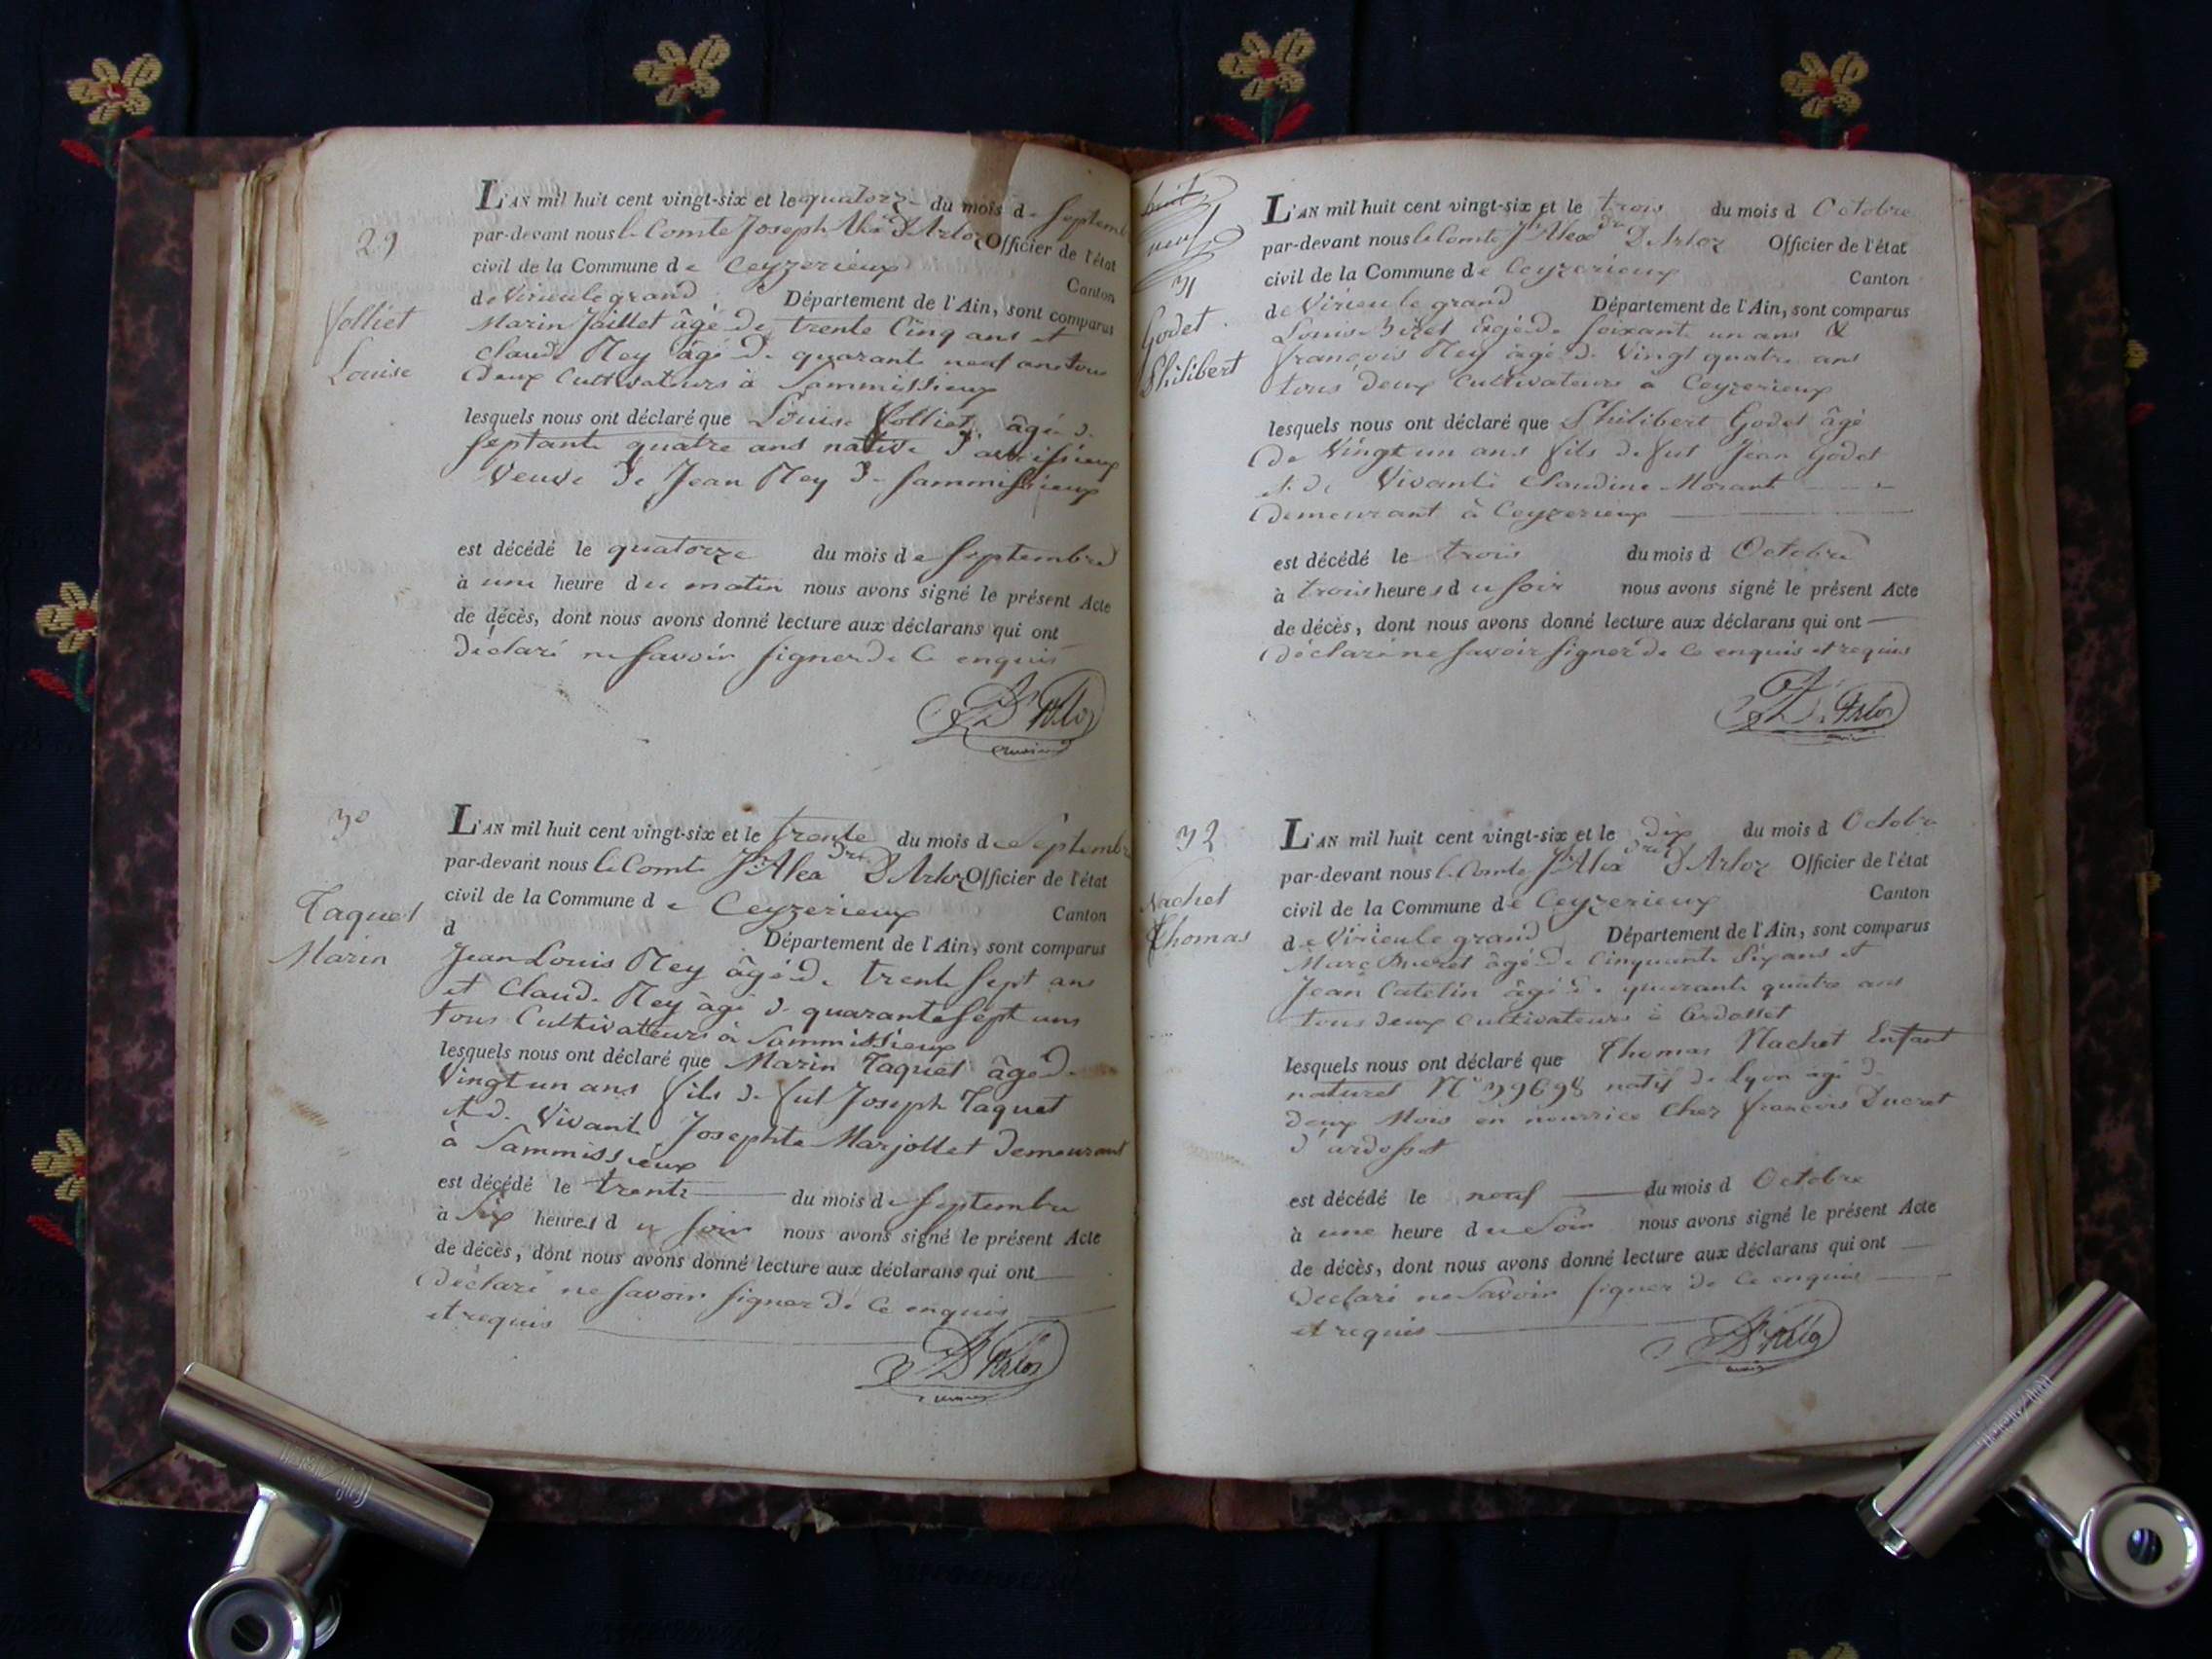 29
Volliet
Louise
L'AN mil huit cent vingt-six et le quatorze du mois de Septemb
par-devant nous le Comte Joseph D'Arloz Officier de l'état
civil de la Commune de Ceyzerieux Canton
de Virieu le grand Département de l'Ain, sont comparus
Marin Jaillet âgé de trente Cinq ans et
Claude Rey âgé de quarante neuf ans tous
deux Cultivateurs à Sammissieux
lesquels nous ont déclaré que Louise Volliet âgée de
septante quatre ans native d'
Veuve de Jean Rey de Sammissieux
est décédé le quatorze du mois de Septembre
à une heure du matin nous avons signé le présent Acte
de décès, dont nous avons donné lecture aux déclarans qui ont
déclaré ne savoir signer de ce enquis
D'Arloz
30
Taquet
Marin
L'AN mil huit cent vingt-six et le trente du mois de Septembr
par-devant nous le Comte J. Alexdre D'Arloz Officier de l'état
civil de la Commune de Ceyzerieux Canton
d Département de l'Ain, sont comparus
Jean Louis Rey âgé de trente sept ans
et Claude Rey âgé de quarante sept ans
tous Cultivateurs à Sammissieux
lesquels nous ont déclaré que Marin Taquet âgé de
Vingt un ans fils de fut Joseph Taquet
et de Vivante Josephte Marjollet demeurant
à Sammissieux
est décédé le trente du mois de Septembre
à Six heures du soir nous avons signé le présent Acte
de décès, dont nous avons donné lecture aux déclarans qui ont
déclaré ne savoir signer de ce enquis
et requis
D'Arloz
huit
neuf
31
Godet
Philibert
L'AN mil huit cent vingt-six et le trois du mois d Octobre
par-devant nous le Comte J. Alexdre D'Arloz Officier de l'état
civil de la Commune de Ceyzerieux Canton
de Virieu le grand Département de l'Ain, sont comparus
Louis Bizet âgé de soixante un ans &
françois Rey âgé de Vingt quatre ans
tous deux Cultivateurs a Ceyzerieux
lesquels nous ont déclaré que Philibert Godet âgé
de Vingt un ans fils de fut Jean Godet
et de Vivante Claudine Morant
demeurant à Ceyzerieux
est décédé le trois du mois d Octobre
à trois heures du soir nous avons signé le présent Acte
de décès, dont nous avons donné lecture aux déclarans qui ont
déclaré ne savoir signer de ce enquis et requis
D'Arloz
32
Nachet
Thomas
L'AN mil huit cent vingt-six et le dix du mois d Octobre
par-devant nous le Comte J. Alexdre D'Arloz Officier de l'état
civil de la Commune de Ceyzerieux Canton
de Virieu le grand Département de l'Ain, sont comparus
Marc Ducret âgé de Cinquante Six ans et
Jean Catelin âgé de quarante quatre ans
tous deux cultivateurs à Ardosset
lesquels nous ont déclaré que Thomas Nachet Enfant
naturel N° 39698 natif de Lyon âgé de
deux Mois en nourrice Chez François Ducret
d'ardosset
est décédé le neuf du mois d Octobre
à une heure du Soir nous avons signé le présent Acte
de décès, dont nous avons donné lecture aux déclarans qui ont
déclaré ne Savoir signer de ce enquis
et requis
D'Arloz